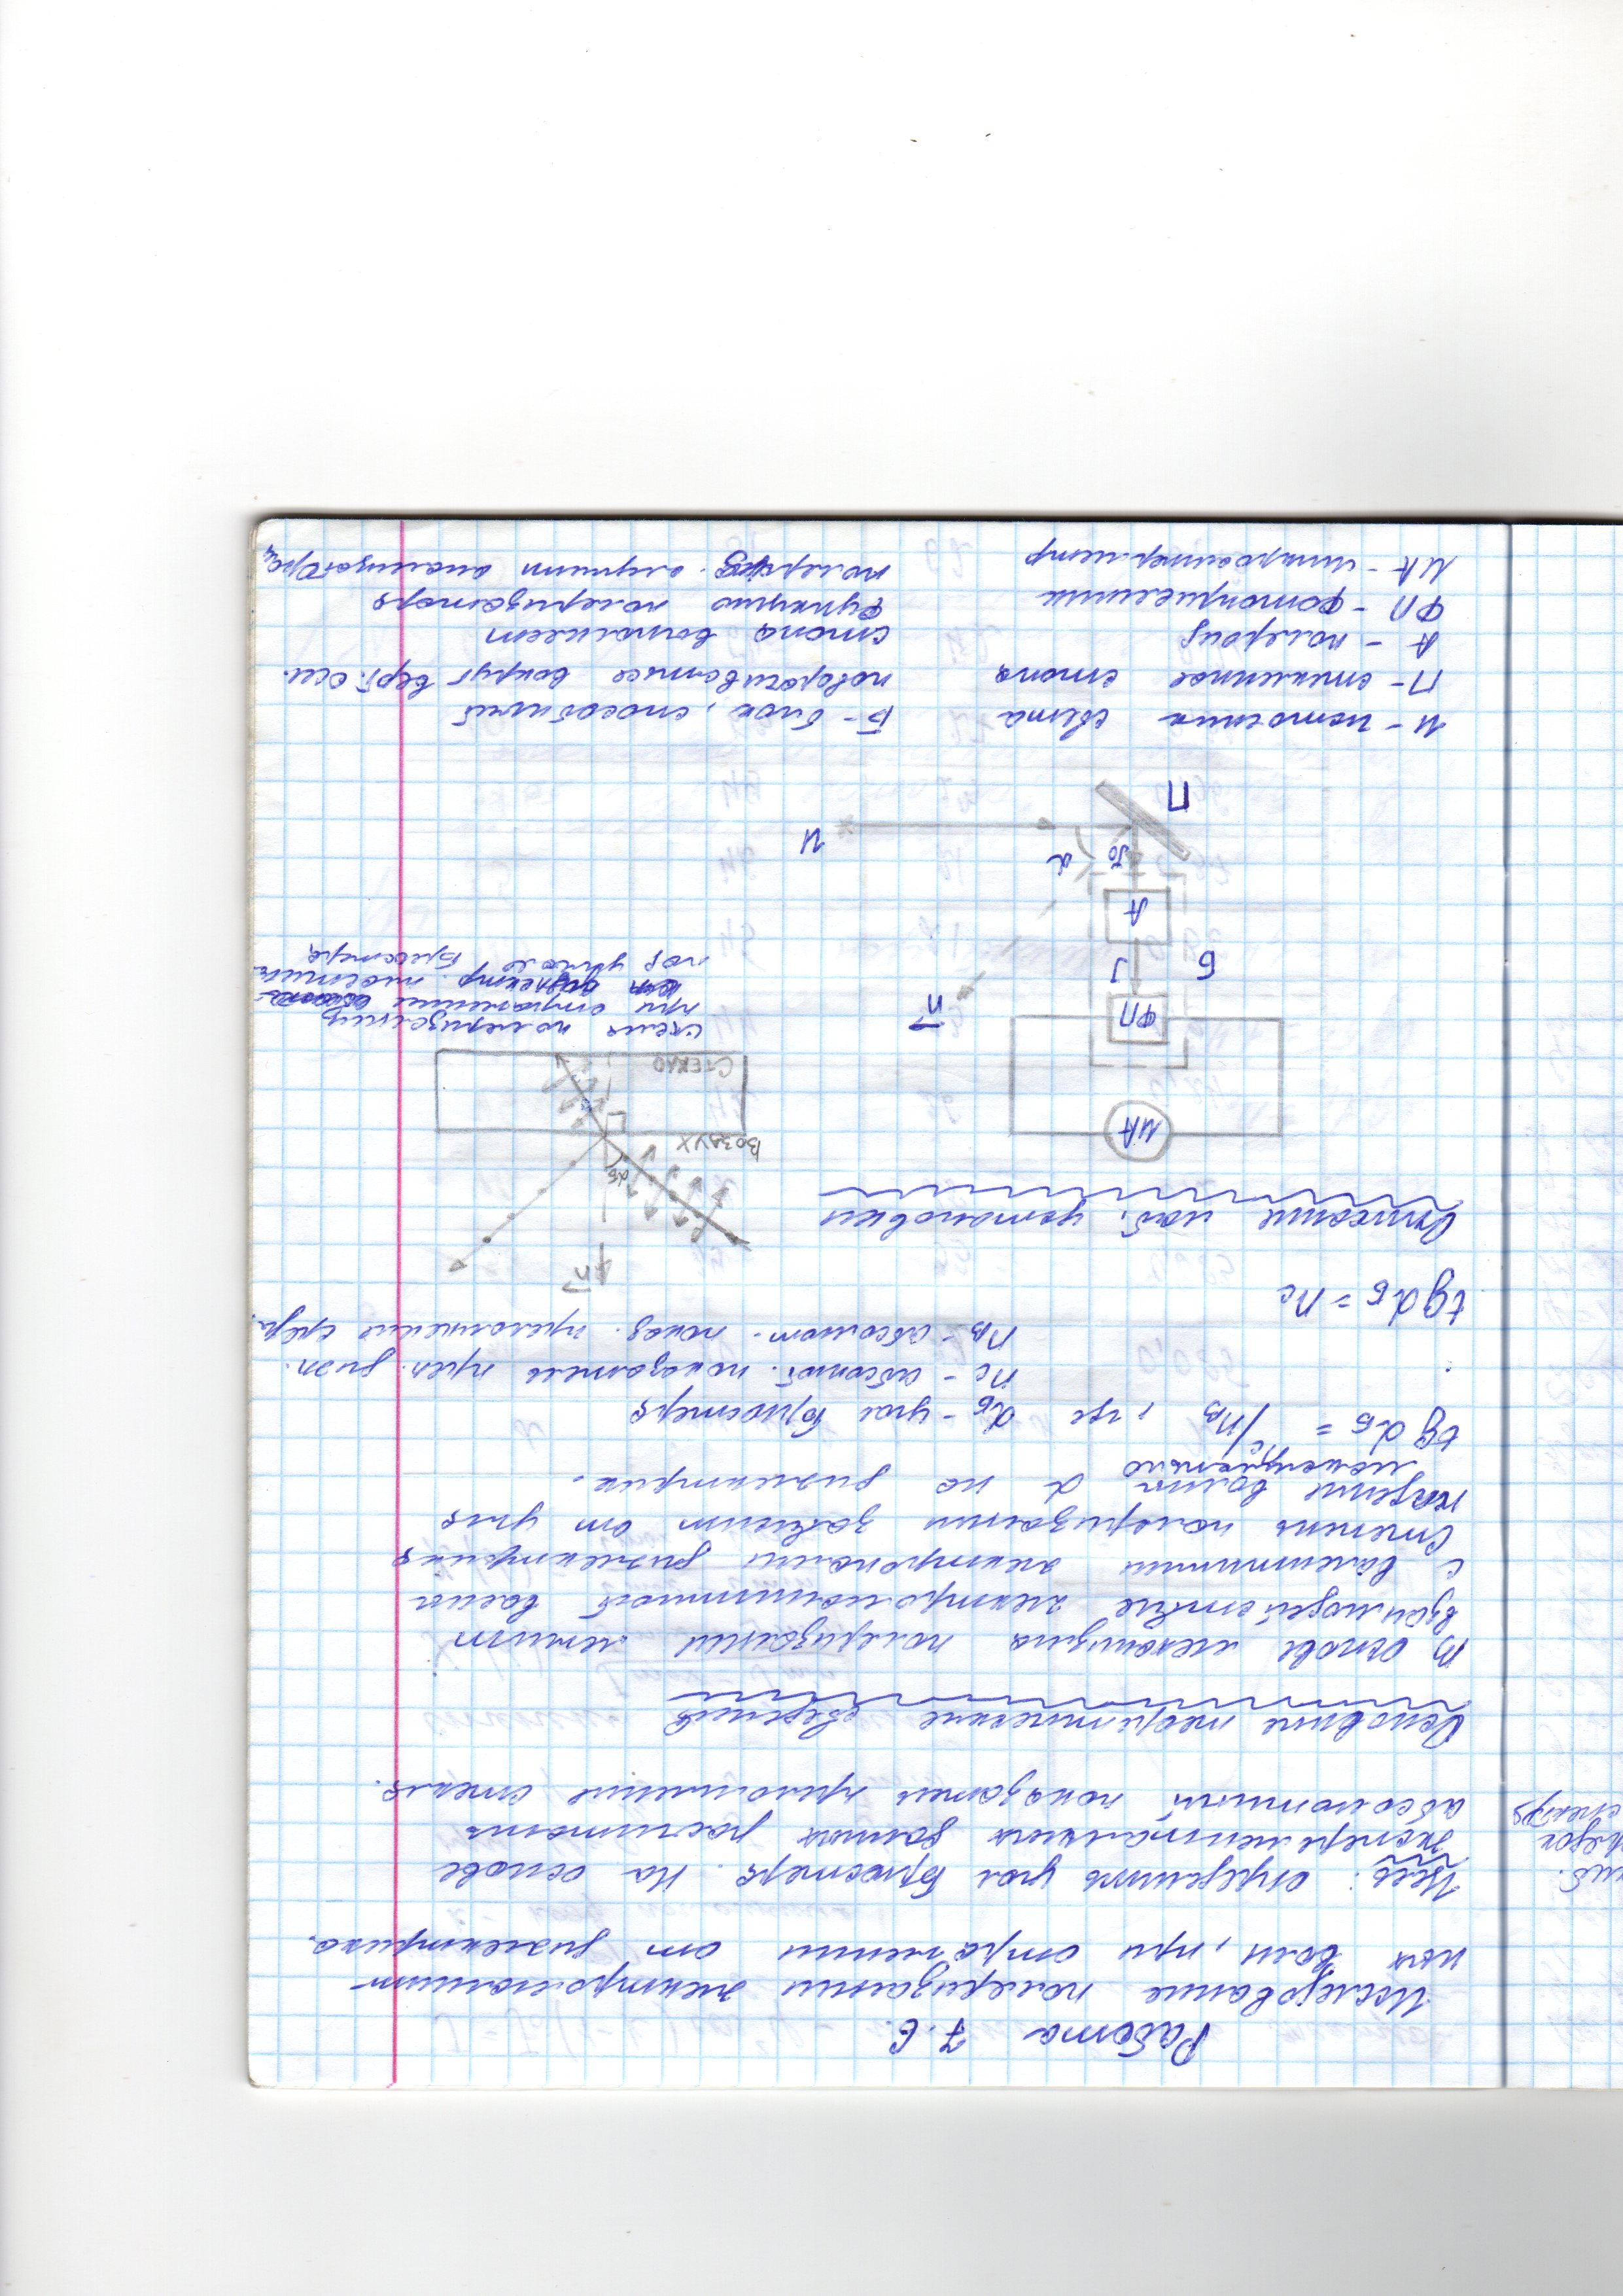 Работа 7.6.
Исследование поляризации электромагнит-
ных волн, при отражении от диэлектрика.
Цель: определить угол Брюстера. На основе
эксперементальных данных расчитать
абсолютный показатель преломления стекла.
Основные теоретические сведения
В основе механизма поляризации лежит
взаимодействие электромагнитной волны
с валентными электронами диэлектрика
Степень поляризации зависит от угла
падения волны α на диэлектрик.
максимально
tg αБ = nс/nв , где αБ - угол Брюстера
nс - абсолют. показатель прел. диэл.
nв - абсолют. показ. преломнения среды.
tg αБ = nс
Описание лаб. установки
n
αБ
ВОЗДУХ
СТЕКЛО
схема поляризации
при отражении
диэлектр. пластины
под углом Брюстера
МА
ФП
n
Б
J
А
J0
α
И
П
И - источник света
П - стеклянная стопа
А - поляроид
ФП - фотоприемник
МА - микроамперметр
Б - блок, способный
поворачиваться вокруг верт. оси.
стопа выполняет
функцию поляризатора
поляроид. служит анализатором
миб.
рядок
спектра